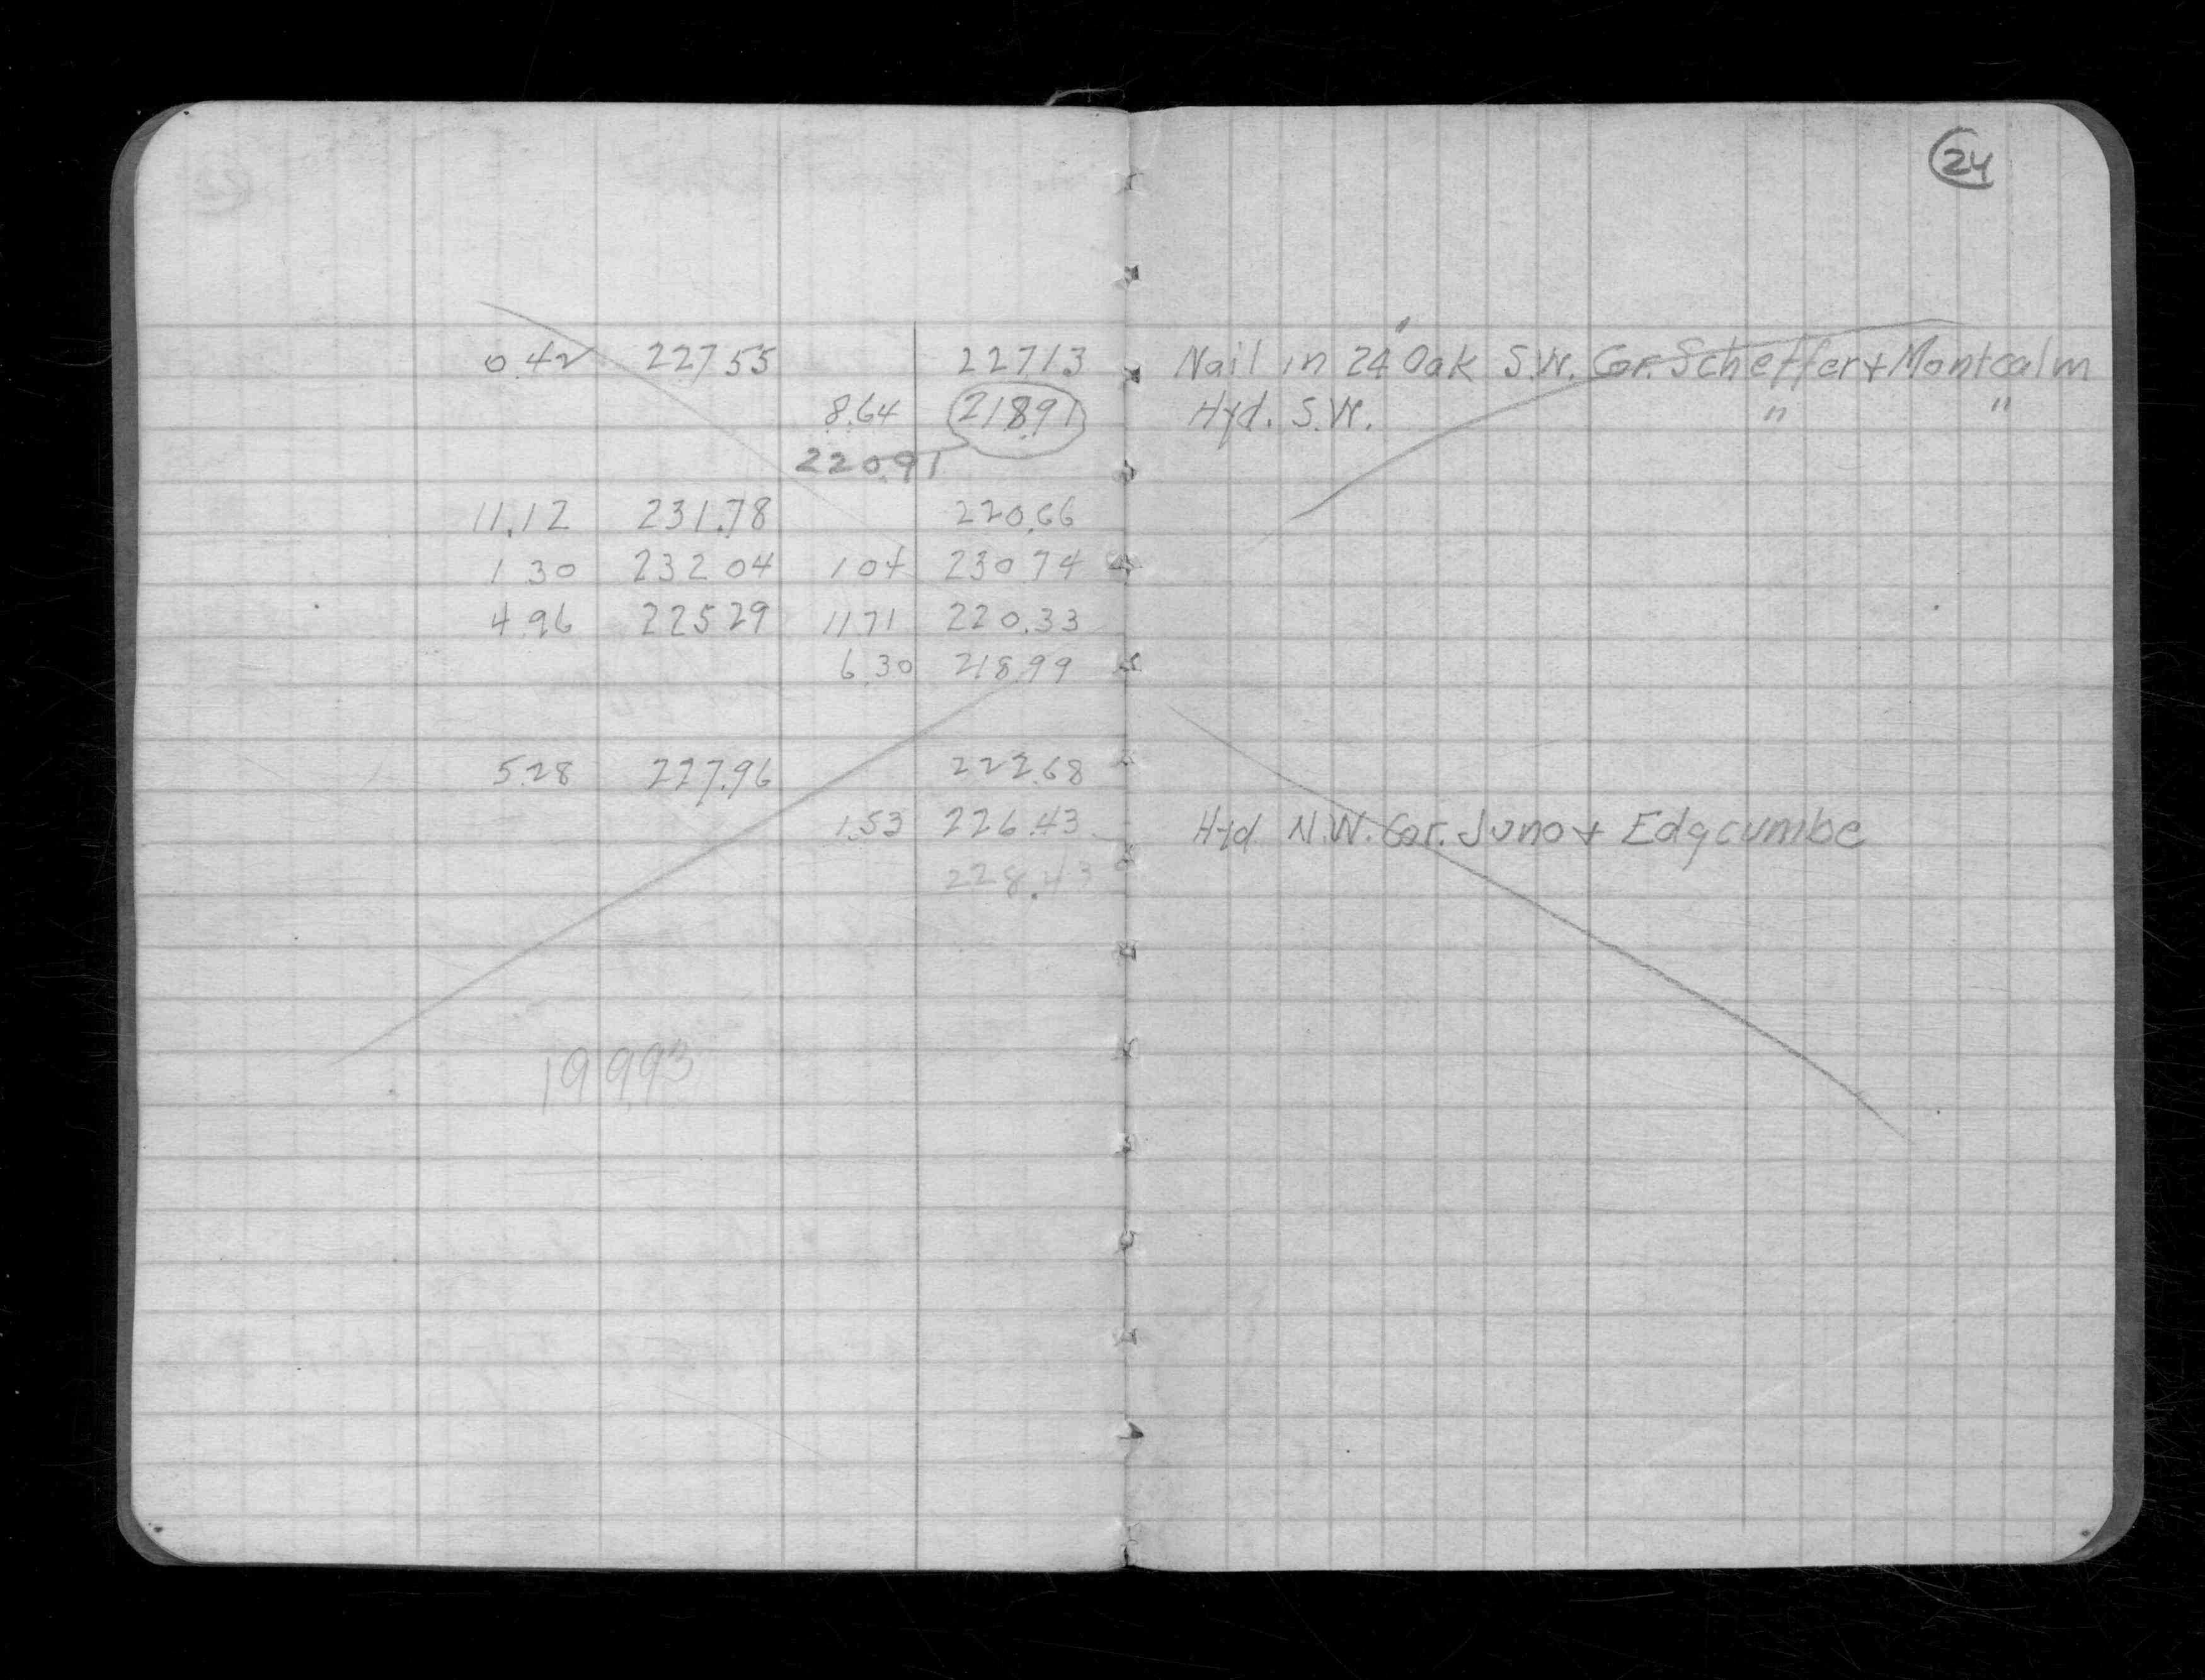 24
0.42 227.55 227.13 Nail in 24" Oak S.W. Cor. Scheffer + Montcalm
8.64 218.91 Hyd. S.W. " "
220.91
11.12 231.78 220.66
1 30 232 04 1 04 230 74
4.96 225 29 11 71 220.33
6.30 218.99
5.28 227.96 222.68
1.53 226.43 Hyd N.W. Cor. Juno + Edgcumbe
228.43
199.93